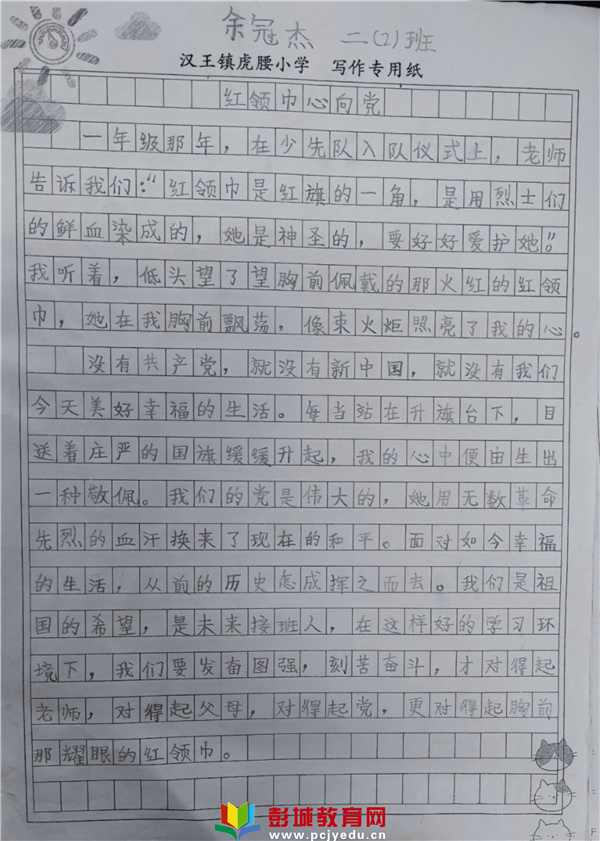 余冠杰 二(2)班
汉王镇虎腰小学 写作专用纸
红领巾心向党
一年级那年，在少先队入队仪式上，老师
告诉我们：“红领巾是红旗的一角，是用烈士们
的鲜血染成的，她是神圣的，要好好爱护她。”
我听着，低头望了望胸前佩戴的那火红的红领
巾，她在我胸前飘荡，像束火炬照亮了我的心。
没有共产党，就没有新中国，就没有我们
今天美好幸福的生活。每当站在升旗台下，目
送着庄严的国旗缓缓升起，我的心中便由生出
一种敬佩。我们的党是伟大的，她用无数革命
先烈的血汗换来了现在的和平。面对如今幸福
的生活，从前的历史怎成挥之而去。我们是祖
国的希望，是未来接班人，在这样好的学习环
境下，我们要发奋图强，刻苦奋斗，才对得起
老师，对得起父母，对得起党，更对得起胸前
那耀眼的红领巾。
彭城教育网
www.pcjyedu.cn